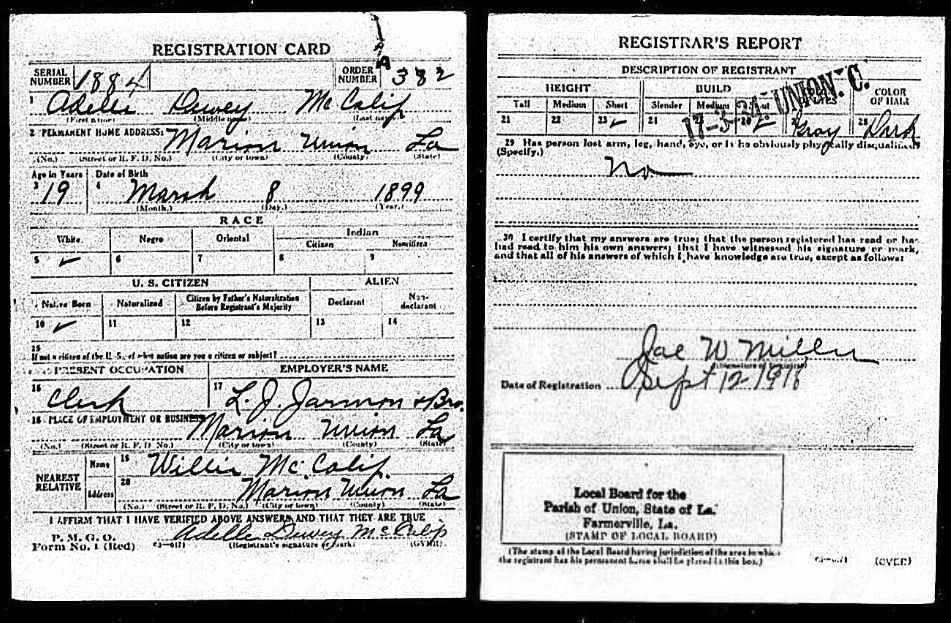 REGISTRATION CARD
SERIAL NUMBER 1884
ORDER NUMBER A 332
1 Adelle Dewey McCalip
(First name) (Middle name) (Last name)
2 PERMANENT HOME ADDRESS: Marion Union La
(No.) (Street or R. F. D. No.) (City or town) (County) (State)
Age in Years Date of Birth
3 19 4 March 8 1899
(Month.) (Day.) (Year.)
RACE
White Negro Oriental Indian
Citizen Noncitizen
5 ✓ 6 7 8 9
U. S. CITIZEN ALIEN
Native Born Naturalized Citizen by Father's Naturalization Before Registrant's Majority Declarant Non-declarant
10 ✓ 11 12 13 14
15
If not a citizen of the U. S., of what nation are you a citizen or subject?
PRESENT OCCUPATION EMPLOYER'S NAME
16 Clerk 17 L. J. Jarmon & Bro.
18 PLACE OF EMPLOYMENT OR BUSINESS: Marion Union La
(No.) (Street or R. F. D. No.) (City or town) (County) (State)
NEAREST RELATIVE Name 19 Willie McCalip
Address 20 Marion Union La
(No.) (Street or R. F. D. No.) (City or town) (County) (State)
I AFFIRM THAT I HAVE VERIFIED ABOVE ANSWERS AND THAT THEY ARE TRUE
P. M. G. O.
Form No. 1 (Red) Adelle Dewey McCalip
(Registrant's signature or mark) (OVER)
REGISTRAR'S REPORT
DESCRIPTION OF REGISTRANT
HEIGHT BUILD COLOR OF EYES COLOR OF HAIR
Tall Medium Short Slender Medium Stout
21 22 23 ✓ 24 Gray 28 Dark
17-3-24 UNION. C.
29 Has person lost arm, leg, hand, eye, or is he obviously physically disqualified? (Specify.)
No
30 I certify that my answers are true; that the person registered has read or has had read to him his own answers; that I have witnessed his signature or mark, and that all of his answers of which I have knowledge are true, except as follows:
Joe W Miller
(Signature of Registrar)
Date of Registration Sept 12 1918
Local Board for the
Parish of Union, State of La.
Farmerville, La.
(STAMP OF LOCAL BOARD)
(The stamp of the Local Board having jurisdiction of the area in which
the registrant has his permanent home shall be placed in this box.)
(OVER)